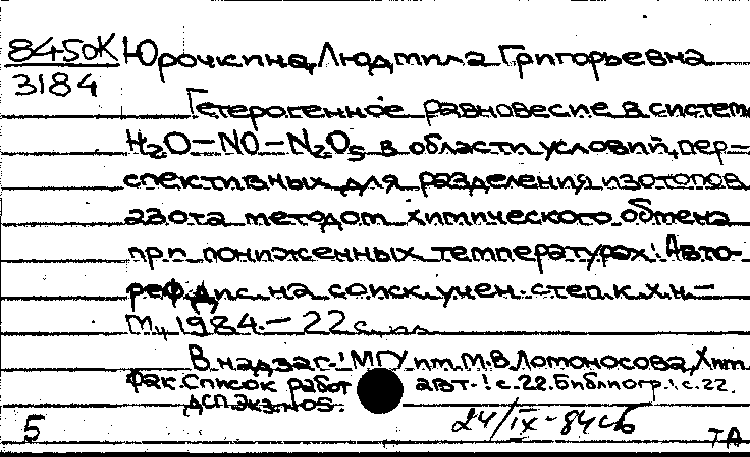 8450К Юрочкина, Людмила Григорьевна
3184
Гетерогенное равновесие в систем
H₂O – NO – N₂O₅ в области условий, пер-
спективных для разделения изотопов
азота методом химического обмена
при пониженных температурах: Авто-
реф. дис. на соиск. учен. степ. к.х.н. –
М., 1984. – 22 с.
В надзаг.: МГУ им. М.В. Ломоносова, Хим.
фак. Список работ авт.: с. 22. Библиогр.: с. 22.
ДСП. Экз. N05.
5 24/IX-84 сб ТА